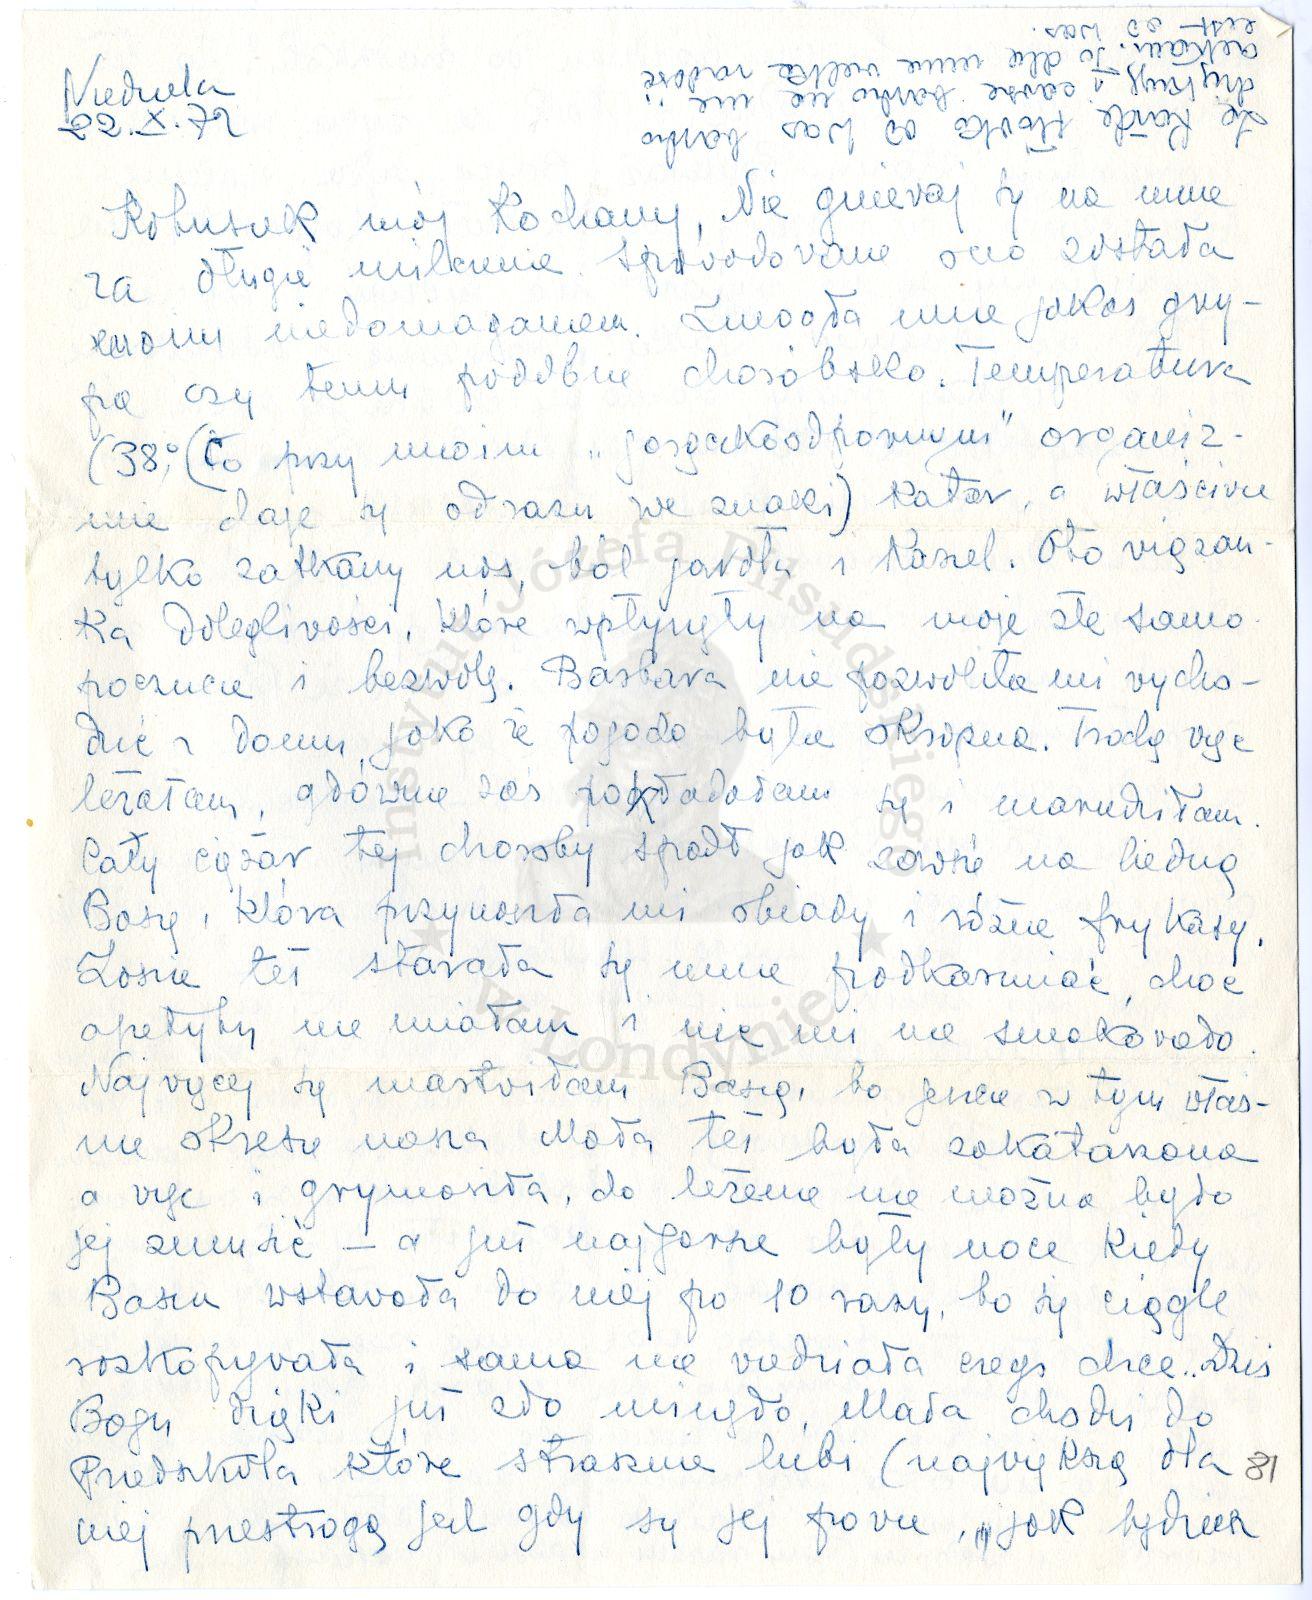 Niedziela
22.X.72
że każde słówko od Was bardzo
i zawsze bardzo na nie
czekam. To dla mnie wielka radość
list od Was.
mój Kochany, Nie gniewaj się na mnie
za długie milczenie. Spowodowane ono zostało
moim niedomaganiem. Zmogła mnie jakaś gry-
pa czy temu podobne choróbsko. Temperatura
(38,° (co przy moim „gorączkoodpornym" organiz-
mie daje się od razu we znaki) katar, a właściwie
tylko zatkany nos, ból gardła i kaszel. Oto wiązan-
ka dolegliwości, które wpłynęły na moje złe samo
poczucie i bezwolę. Barbara nie pozwoliła mi wycho-
dzić z domu, jako że pogoda była okropna. Trochę więc
leżałam, głównie zaś pokładałam się i marudziłam.
Cały ciężar tej choroby spadł jak zawsze na biedną
Basię, która przynosiła mi obiady i różne frykasy.
Zosia też starała się mnie podkarmiać, choć
apetytu nie miałam i nic mi nie smakowało.
Najwięcej się martwiłam Basią, bo jeszcze w tym właś-
nie okresie nasza Mała też była zakatarzona
a więc i grymasiła, do leżenia nie można było
jej zmusić — a już najgorsze były noce kiedy
Basia wstawała do niej po 10 razy, bo się ciągle
rozkopywała i sama nie wiedziała czego chce.. Dziś
Bogu dzięki już zło minęło, Mała chodzi do
Przedszkola które strasznie lubi (największą dla 81
niej przestrogą jest gdy się jej powie, „jak będziesz
Instytut Józefa Piłsudskiego
w Londynie